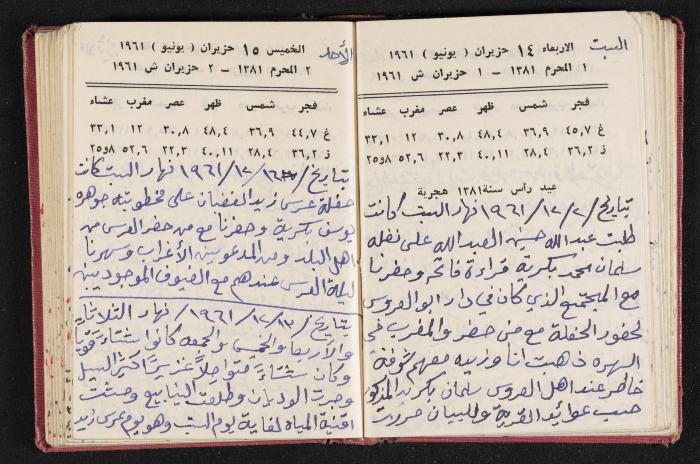 السبت
الاربعاء ١٤ حزيران ( يونيو ) ١٩٦١
١ المحرم ١٣٨١ — ١ حزيران ش ١٩٦١
فجر شمس ظهر عصر مغرب عشاء
غ ٤٥,٧ ٣٦,٩ ٤٨,٤ ٣٠,٨ ١٢ ٣٣,١
ز ٣٦,٢ ٢٨,٤ ٤٠,١١ ٢٢,٣ ٥٢,٦ ٢٥و٨
عيد رأس سنة ١٣٨١ هجرية
بتاريخ /٢/١٢/١٩٦١ نهار السبت كانت
طلبت عبدالله حسين العبدالله على نفله
سلمان محمد بكرية قراءة فاتحه وحضرنا
مع المجتمع الذي كان في دار ابو العروس
لحضور الحفلة مع من حضر والمغرب في
السهره ذهبت انا وزينه معهم شوفة
خاطر عند اهل العروس سلمان بكريه المذكور
حسب عوائد القرية وللبيان حرر
الأحد
الخميس ١٥ حزيران ( يونيو ) ١٩٦١
٢ المحرم ١٣٨١ — ٢ حزيران ش ١٩٦١
فجر شمس ظهر عصر مغرب عشاء
غ ٤٤,٧ ٣٦,٩ ٤٨,٤ ٣٠,٨ ١٢ ٣٣,١
ز ٣٦,٢ ٢٨,٤ ٤٠,١١ ٢٢,٣ ٥٢,٦ ٢٥و٨
بتاريخ /١٢/١٩٦١ نهار السبت كانت
حفلة عرس زيد الغضبان على مخطوبته جوهره
يوسف بكرية وحضرنا مع من حضر العرس من
اهل البلد ومن المدعوين الأغراب وسهرنا
ليلة العرس عندهم مع الضيوف الموجودين
بتاريخ /١٢/١٢/١٩٦١ نهار الثلاثاء
والأربعا والخميس والجمعه كانوا شتاء قويا
وكان شتاءً متواصلاً غزيراً كثير السيل
وجرت الوديان وطلعت الينابيع ومشت
اقنية المياه لغاية يوم السبت وهو يوم عرس زيد